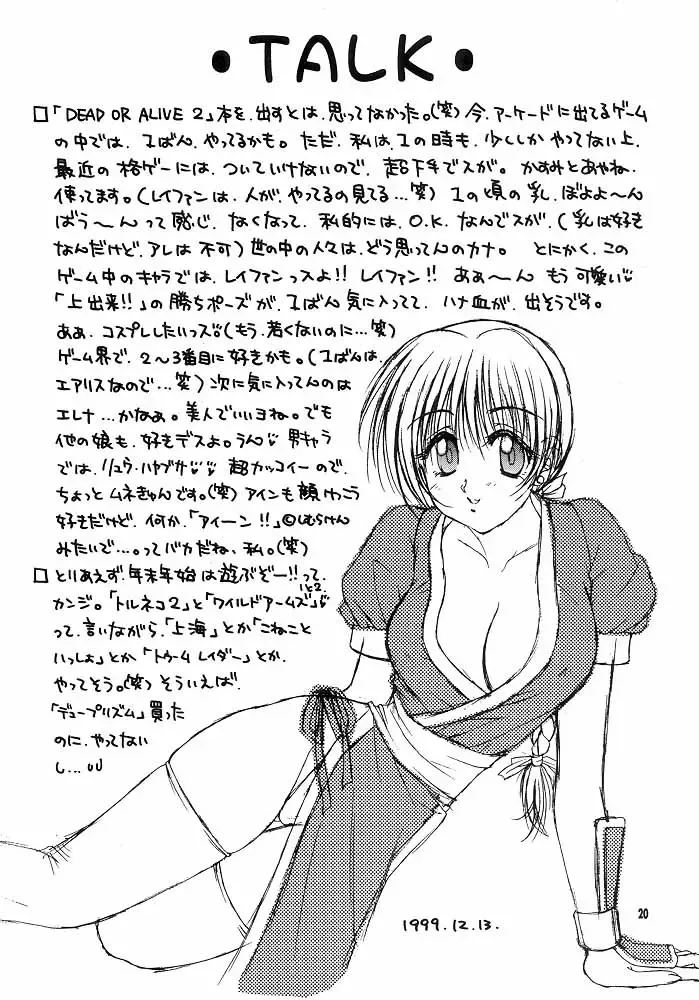 •TALK•
□「DEAD OR ALIVE 2」本を、出すとは、思ってなかった。(笑)今、アーケードに出てるゲーム
の中では、1ばん、やってるかも。ただ、私は、1の時も、少ししか、やってない上、
最近の格ゲーには、ついていけないので、超下手でスが。かすみとあやね、
使ってます。(レイファンは、人が、やってるの見てる…笑) 1の頃の乳、ぼよよ〜ん
ばう〜んって感じ、なくなって、私的には、O.K.なんでスが、(乳は好き
なんだけど、アレは不可)世の中の人々は、どう思ってんのカナ。とにかく、この
ゲーム中のキャラでは、レイファンっスよ!!レイファン!!あぁ〜ん もう可愛い
「上出来!!」の勝ちポーズが、1ばん気に入ってて、ハナ血が、出そうです。
ああ、コスプレしたいっス。(もう、若くないのに…笑)
ゲーム界で、2〜3番目に好きかも。(1ばんは、
エアリスなので…笑)次に気に入ってんのは
エレナ…かなぁ。美人でいいヨね。でも
他の娘も、好きデスよ。うん。男キャラ
では、リュウ・ハヤブサ 超カッコイーので、
ちょっとムネきゅんです。(笑)アインも顔けっこう
好きだけど、何か、「アイーン!!」©しむらけん
みたいで…。ってバカだね、私。(笑)
□とりあえず、年末年始は遊ぶぞー!!って、
カンジ。「トルネコ2」と「ワイルドアームズ1と2」
って、言いながら、「上海」とか「こねこと
いっしょ」とか「トゥームレイダー」とか、
やってそう。(笑)そういえば、
「デュープリズム」買った
のに、やってない
し…
1999.12.13.
20